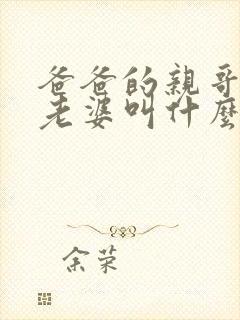 爸爸的親哥
老婆叫什麼
余荣